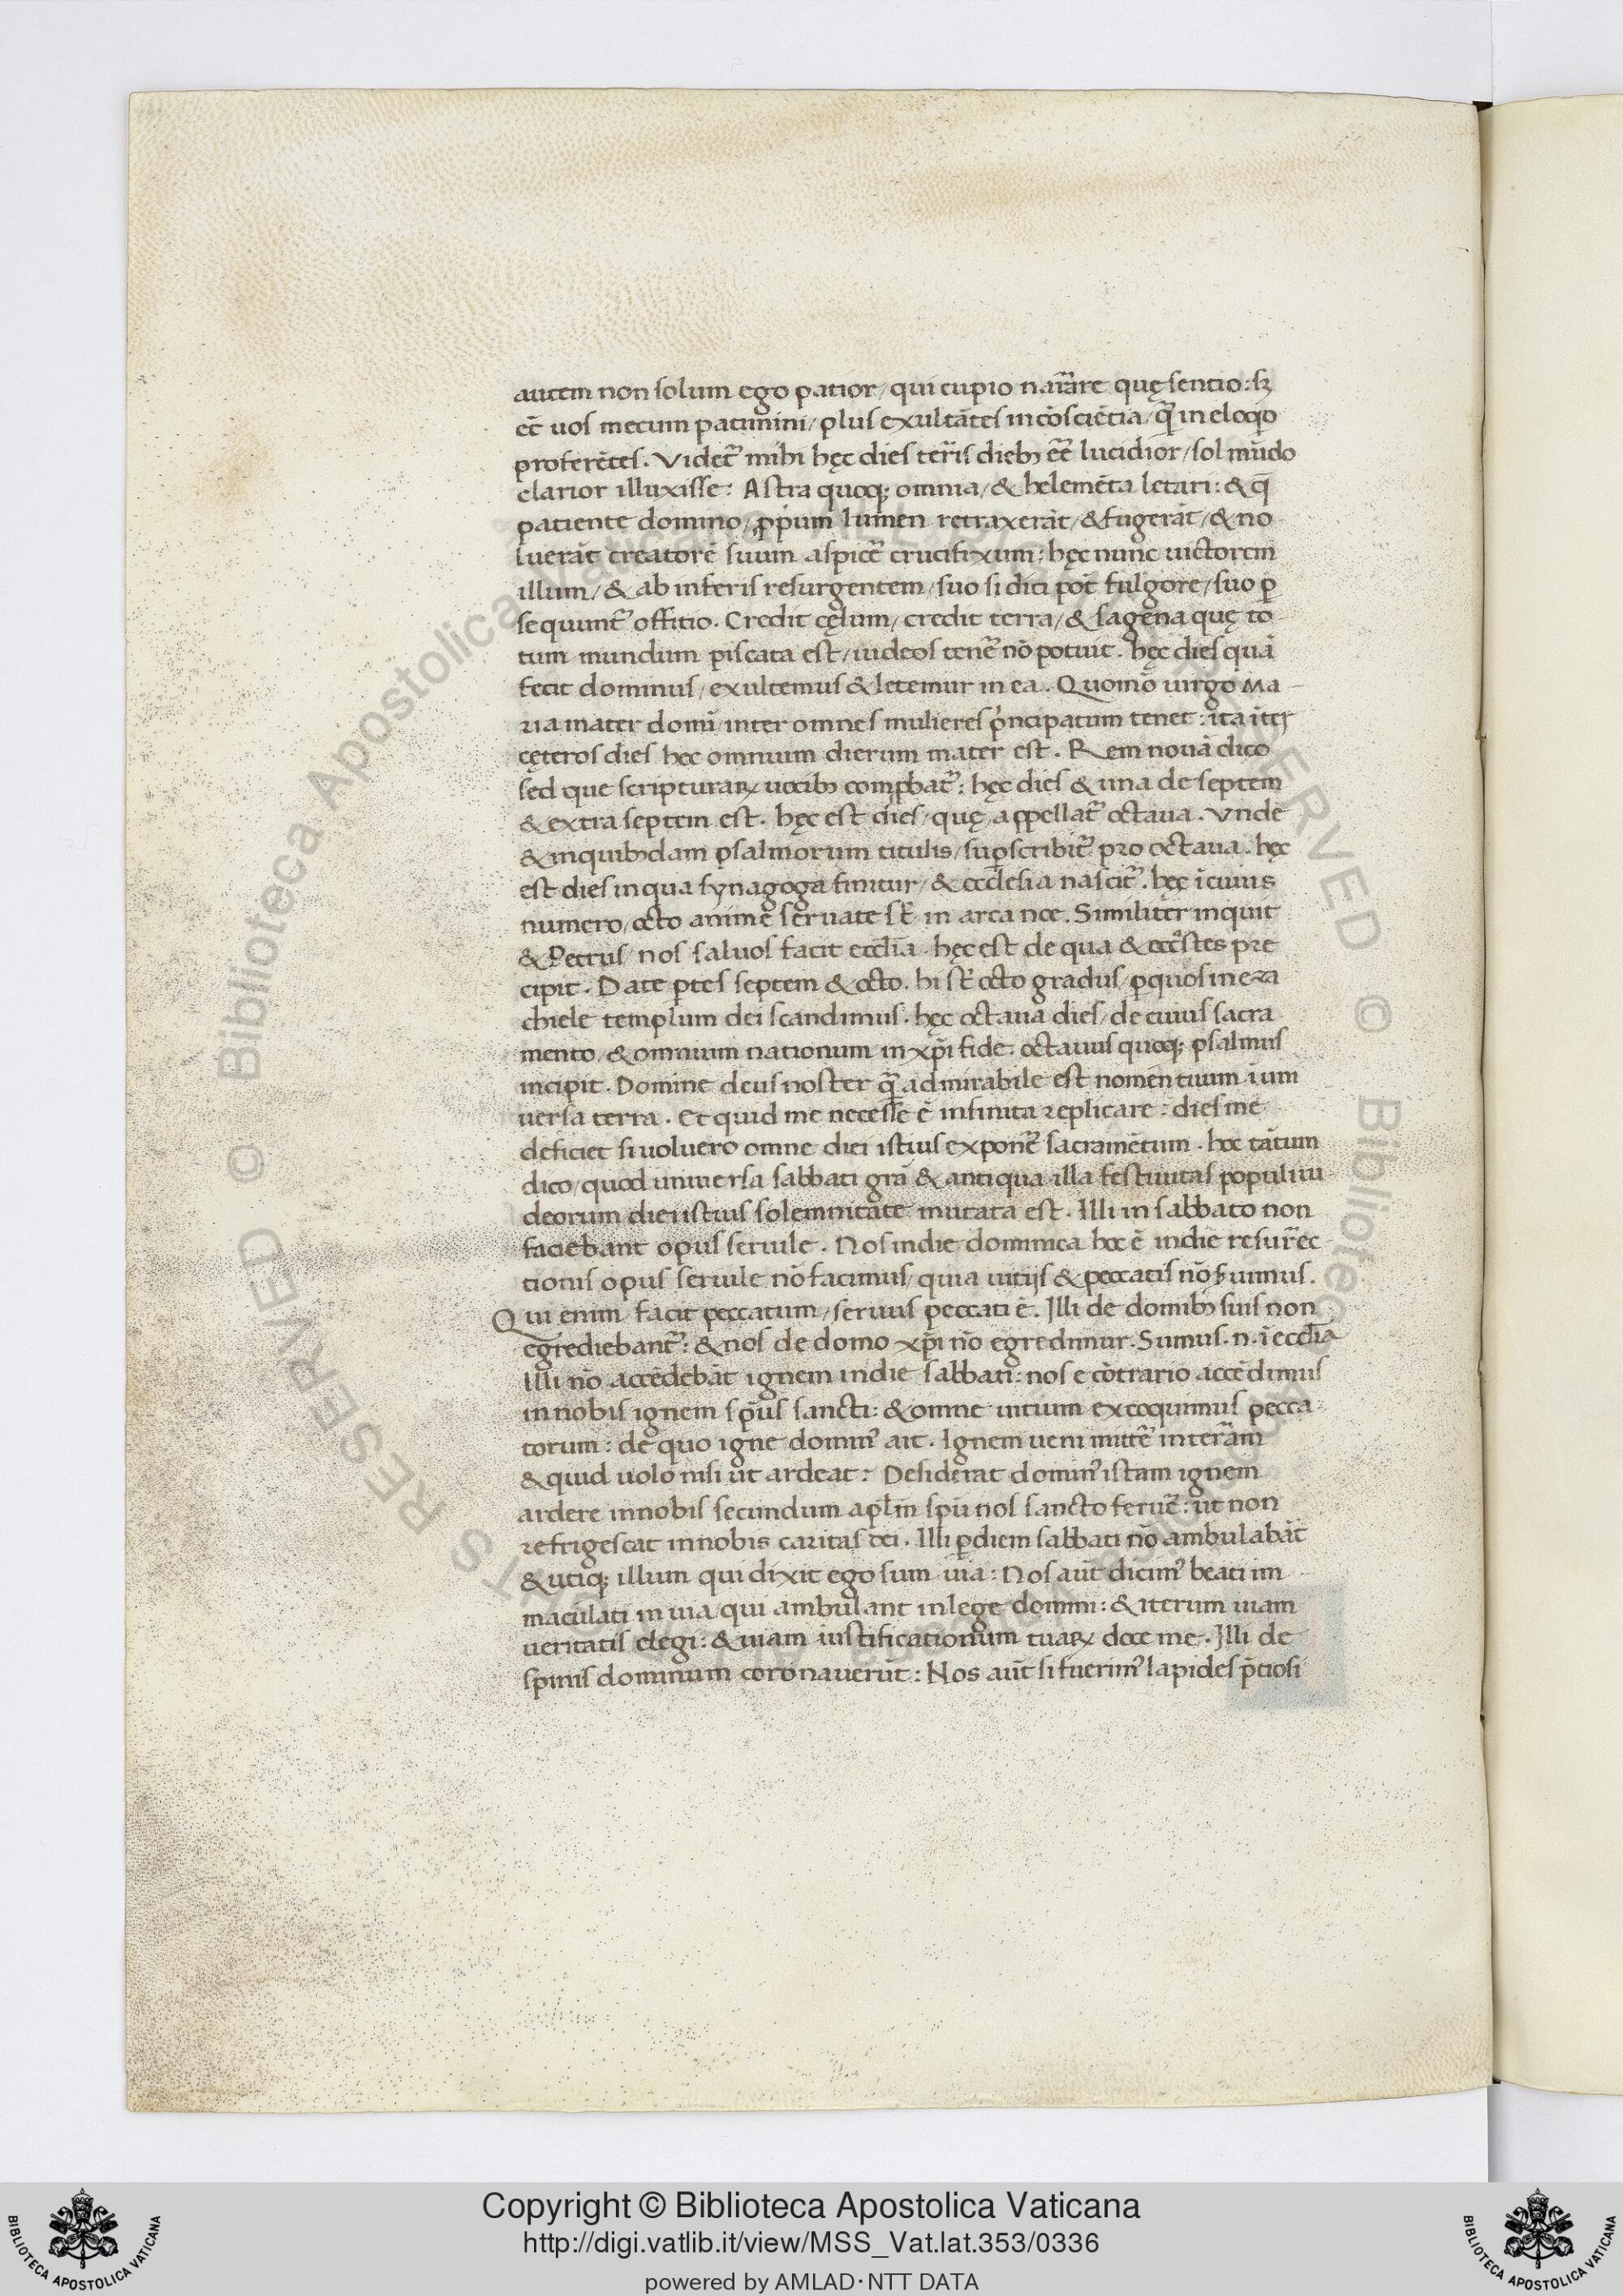 autem non solum ego patior / qui cupio narrare̅ quę sentio: sꝫ
et̅ uos mecum patimini / plus exulta̅tes in co̅scie̅tia / q̅ in eloq̇o
profere̅tes. Videt᷑ mihi hęc dies ter̅is diebꝫ ee̅ lucidior / sol mu̅do
clarior illuxisse: Astra quoqꝫ omnia / & heleme̅ta letari: & q̅
patiente domino / ꝓpium lumen retraxera̅t / & fugera̅t / & no
luera̅t creatore̅ suum aspice᷑ crucifixum: hęc nunc uictorem
illum / & ab inferis resurgentem / suo si dici pot̅ fulgore / suo ꝑ
sequunt᷑ offitio. Credit cęlum / credit terra / & sagena quę to
tum mundum piscata est / iudeos tene᷑ no̅ potuit. hęc dies qua̅
fecit dominus / exultemus & letemur in ea. Quomo̅ uirgo Ma
ria mater domi̅ inter omnes mulieres pͥncipatum tenet: ita i̅ter
cęteros dies hęc omnium dierum mater est. Rem noua̅ dico
sed que scripturaꝝ uocibꝫ comꝓbat᷑: hęc dies & una de septem
& extra septem est. hęc est dies / quę appellat᷑ octaua. Vnde
& in quibꝫdam psalmorum titulis / suꝑscribit᷑ pro octaua. hęc
est dies in qua synagoga finitur / & ecclesia nascit᷑. hęc i̅ cuius
numero / octo anime seruate st̅ in arca noe. Similiter inquit
& Petrus / nos saluos facit eccl̅ia. hęc est de qua & eccͣstes pre
cipit. Date ꝑtes septem & octo. hi st̅ octo gradus / ꝑ quos in eza
chiele templum dei scandimus. hęc octaua dies / de cuius sacra
mento / & omnium nationum in xp̅i fide. octauus quoqꝫ psalmus
incipit. Domine deus noster q̅ admirabile est nomen tuum i̅ uni
uersa terra. Et quid me necesse e̅ infinita replicare: dies me
deficiet si uoluero omne diei istius expone᷑ sacrame̅tum. hoc ta̅tum
dico / quod uniuersa sabbati gr̅a & antiqua illa festiuitas populi iu
deorum diei istius solemnitate mutata est. Illi in sabbato non
faciebant opus seruile. Nos in die dominica hoc e̅ in die resur̅ec
tionis opus seruile no̅ facimus / quia uitijs & peccatis no̅ ẜuimus.
Qui enim facit peccatum / seruus peccati e̅. Illi de domibꝫ suis non
egrediebant᷑: & nos de domo xp̅i no̅ egredimur. Sumus .n. i̅ eccl̅ia
Illi no̅ accendeba̅t ignem in die sabbati: nos e co̅trario acce̅dimus
in nobis ignem sp̅us sancti: & omne uitium excoquimus pecca
torum: de quo igne domin᷒ ait. Ignem ueni mitte᷑ in ter̅am
& quid uolo nisi ut ardeat: Desiderat domin᷒ istam ignem
ardere in nobis secundum apl̅m sp̅u nos sancto ferue᷑: ut non
refrigescat in nobis caritas dei. Illi ꝑ diem sabbati no̅ ambulaba̅t
& utiqꝫ illum qui dixit ego sum uia: Nos aut̅ dicim᷒ beati im
maculati in uia / qui ambulant in lege domini: & iterum uiam
ueritatis elegi: & uiam iustificationum tuaꝝ doce me. Illi de
spinis dominum coronaueru̅t: Nos aut̅ si fuerim᷒ lapides p̅tiosi
Copyright © Biblioteca Apostolica Vaticana
http://digi.vatlib.it/view/MSS_Vat.lat.353/0336
powered by AMLAD·NTT DATA